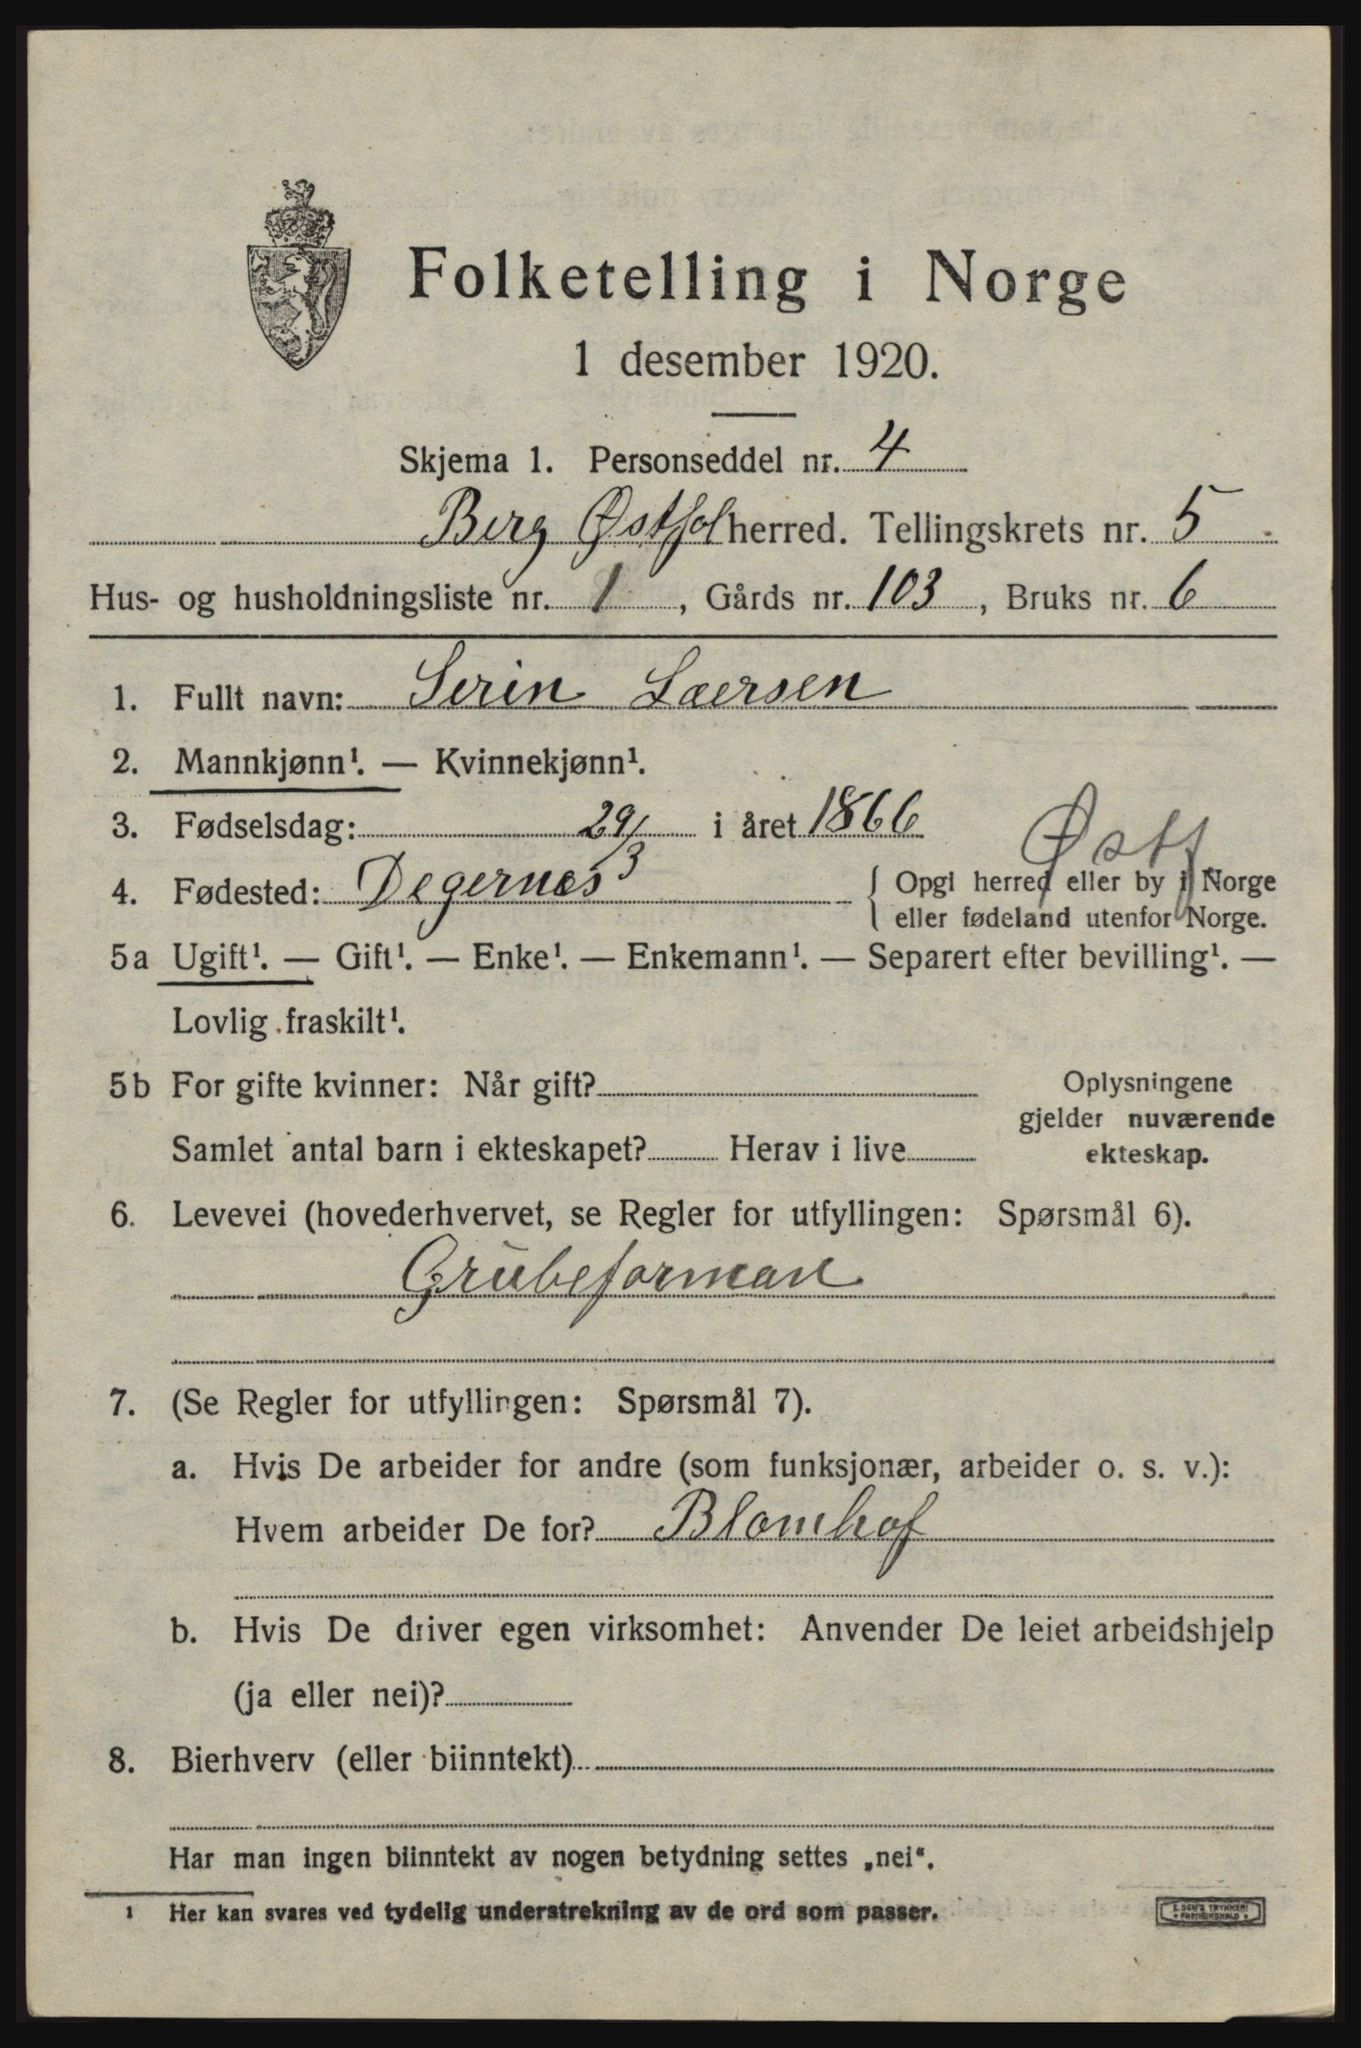 Folketelling i Norge
1 desember 1920.
Skjema 1. Personseddel nr. 4
Berg Østfol herred. Tellingskrets nr. 5
Hus- og husholdningsliste nr. 1, Gårds nr. 103, Bruks nr. 6
1. Fullt navn: Serin Laersen
2. Mannkjønn¹. — Kvinnekjønn¹.
3. Fødselsdag: 29/3 i året 1866
Østf
4. Fødested: Degernes { Opgi herred eller by i Norge
eller fødeland utenfor Norge.
5a Ugift¹. — Gift¹. — Enke¹. — Enkemann¹. — Separert efter bevilling¹. —
Lovlig fraskilt¹.
5b For gifte kvinner: Når gift?
Samlet antal barn i ekteskapet? Herav i live
Oplysningene
gjelder nuværende
ekteskap.
6. Levevei (hovederhvervet, se Regler for utfyllingen: Spørsmål 6).
Grubeforman
7. (Se Regler for utfyllingen: Spørsmål 7).
a. Hvis De arbeider for andre (som funksjonær, arbeider o. s. v.):
Hvem arbeider De for? Blomhof
b. Hvis De driver egen virksomhet: Anvender De leiet arbeidshjelp
(ja eller nei)?
8. Bierhverv (eller biinntekt)
Har man ingen biinntekt av nogen betydning settes „nei“.
¹ Her kan svares ved tydelig understrekning av de ord som passer.
E. SEM'S TRYKKERI
FREDRIKSHALD